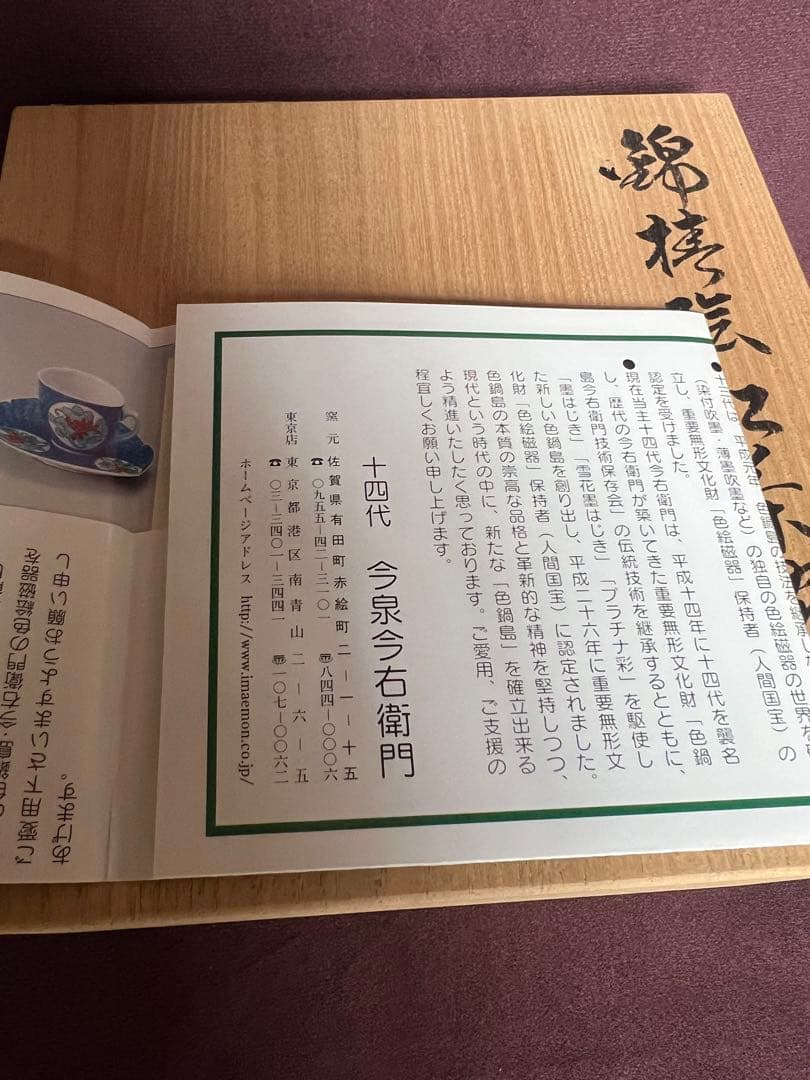 錦椿絵
十三代は、平成元年、色鍋島の技法を継承し
(染付吹墨・薄墨吹墨など)の独自の色絵磁器の世界を確
立し、重要無形文化財「色絵磁器」保持者(人間国宝)の
認定を受けました。
●現在当主十四代今右衛門は、平成十四年に十四代を襲名
し、歴代の今右衛門が築いてきた重要無形文化財「色鍋
島今右衛門技術保存会」の伝統技術を継承するとともに、
「墨はじき」「雪花墨はじき」「プラチナ彩」を駆使し
た新しい色鍋島を創り出し、平成二十六年に重要無形文
化財「色絵磁器」保持者(人間国宝)に認定されました。
色鍋島の本質の崇高な品格と革新的な精神を堅持しつつ、
現代という時代の中に、新たな「色鍋島」を確立出来る
よう精進いたしたく思っております。ご愛用、ご支援の
程宜しくお願い申し上げます。
十四代 今泉今右衛門
窯元 佐賀県有田町赤絵町二-一-十五
☎〇九五五-四二-三一〇一 〠八四四-〇〇〇六
東京店 東京都港区南青山二-六-五
☎〇三-三四〇一-三四四一 〠一〇七-〇〇六二
ホームページアドレス http://www.imaemon.co.jp/
色鍋島・今右衛門の色絵磁器を
ご愛用下さいますようお願い申し
あげます。